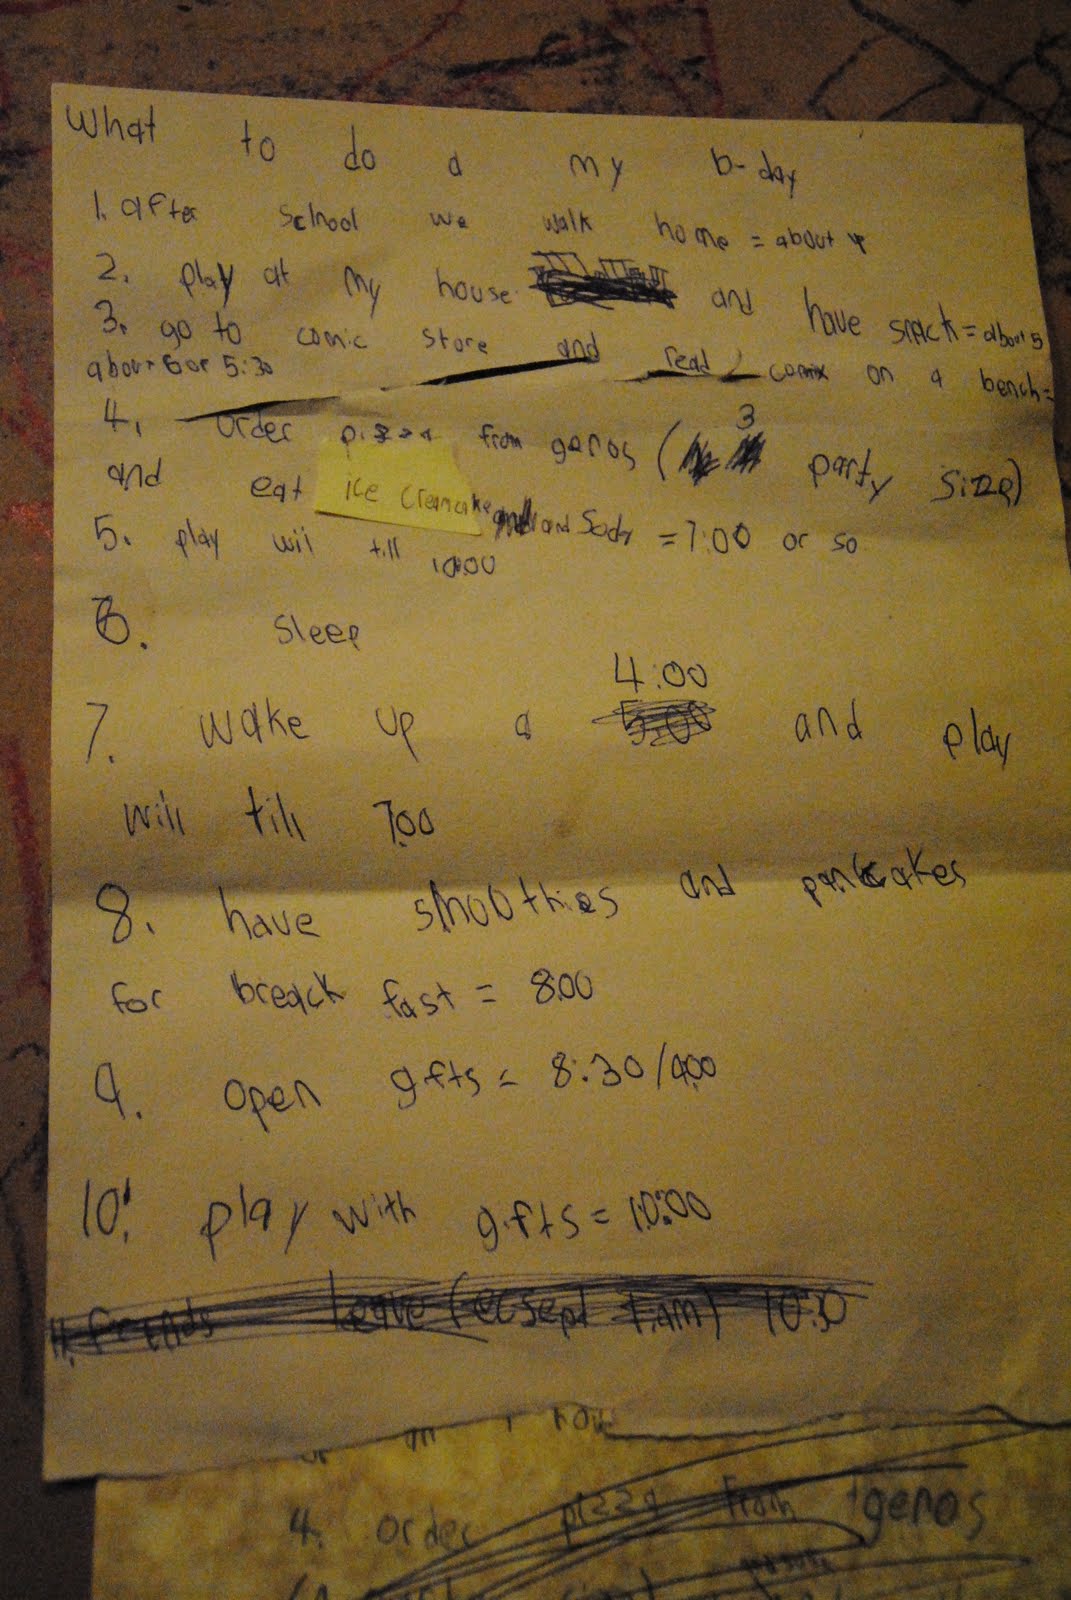 What to do a my b-day
1. after school we walk home = about 4
2. play at my house and have snack = about 5
3. go to comic store and read comix on a bench =
about 6 or 5:30
4. order pizza from genos (3 party size)
and eat ice creamcake and soda = 7:00 or so
5. play wil till 10:00
6. sleep
7. wake up a 4:00 5:00 and play
will till 7:00
8. have smoothies and pankcakes
for breack fast = 8:00
9. open gifts = 8:30/9:00
10. play with gifts = 10:00
11. friends leave (ecsept tiam) 10:30
4. order pizza from genos